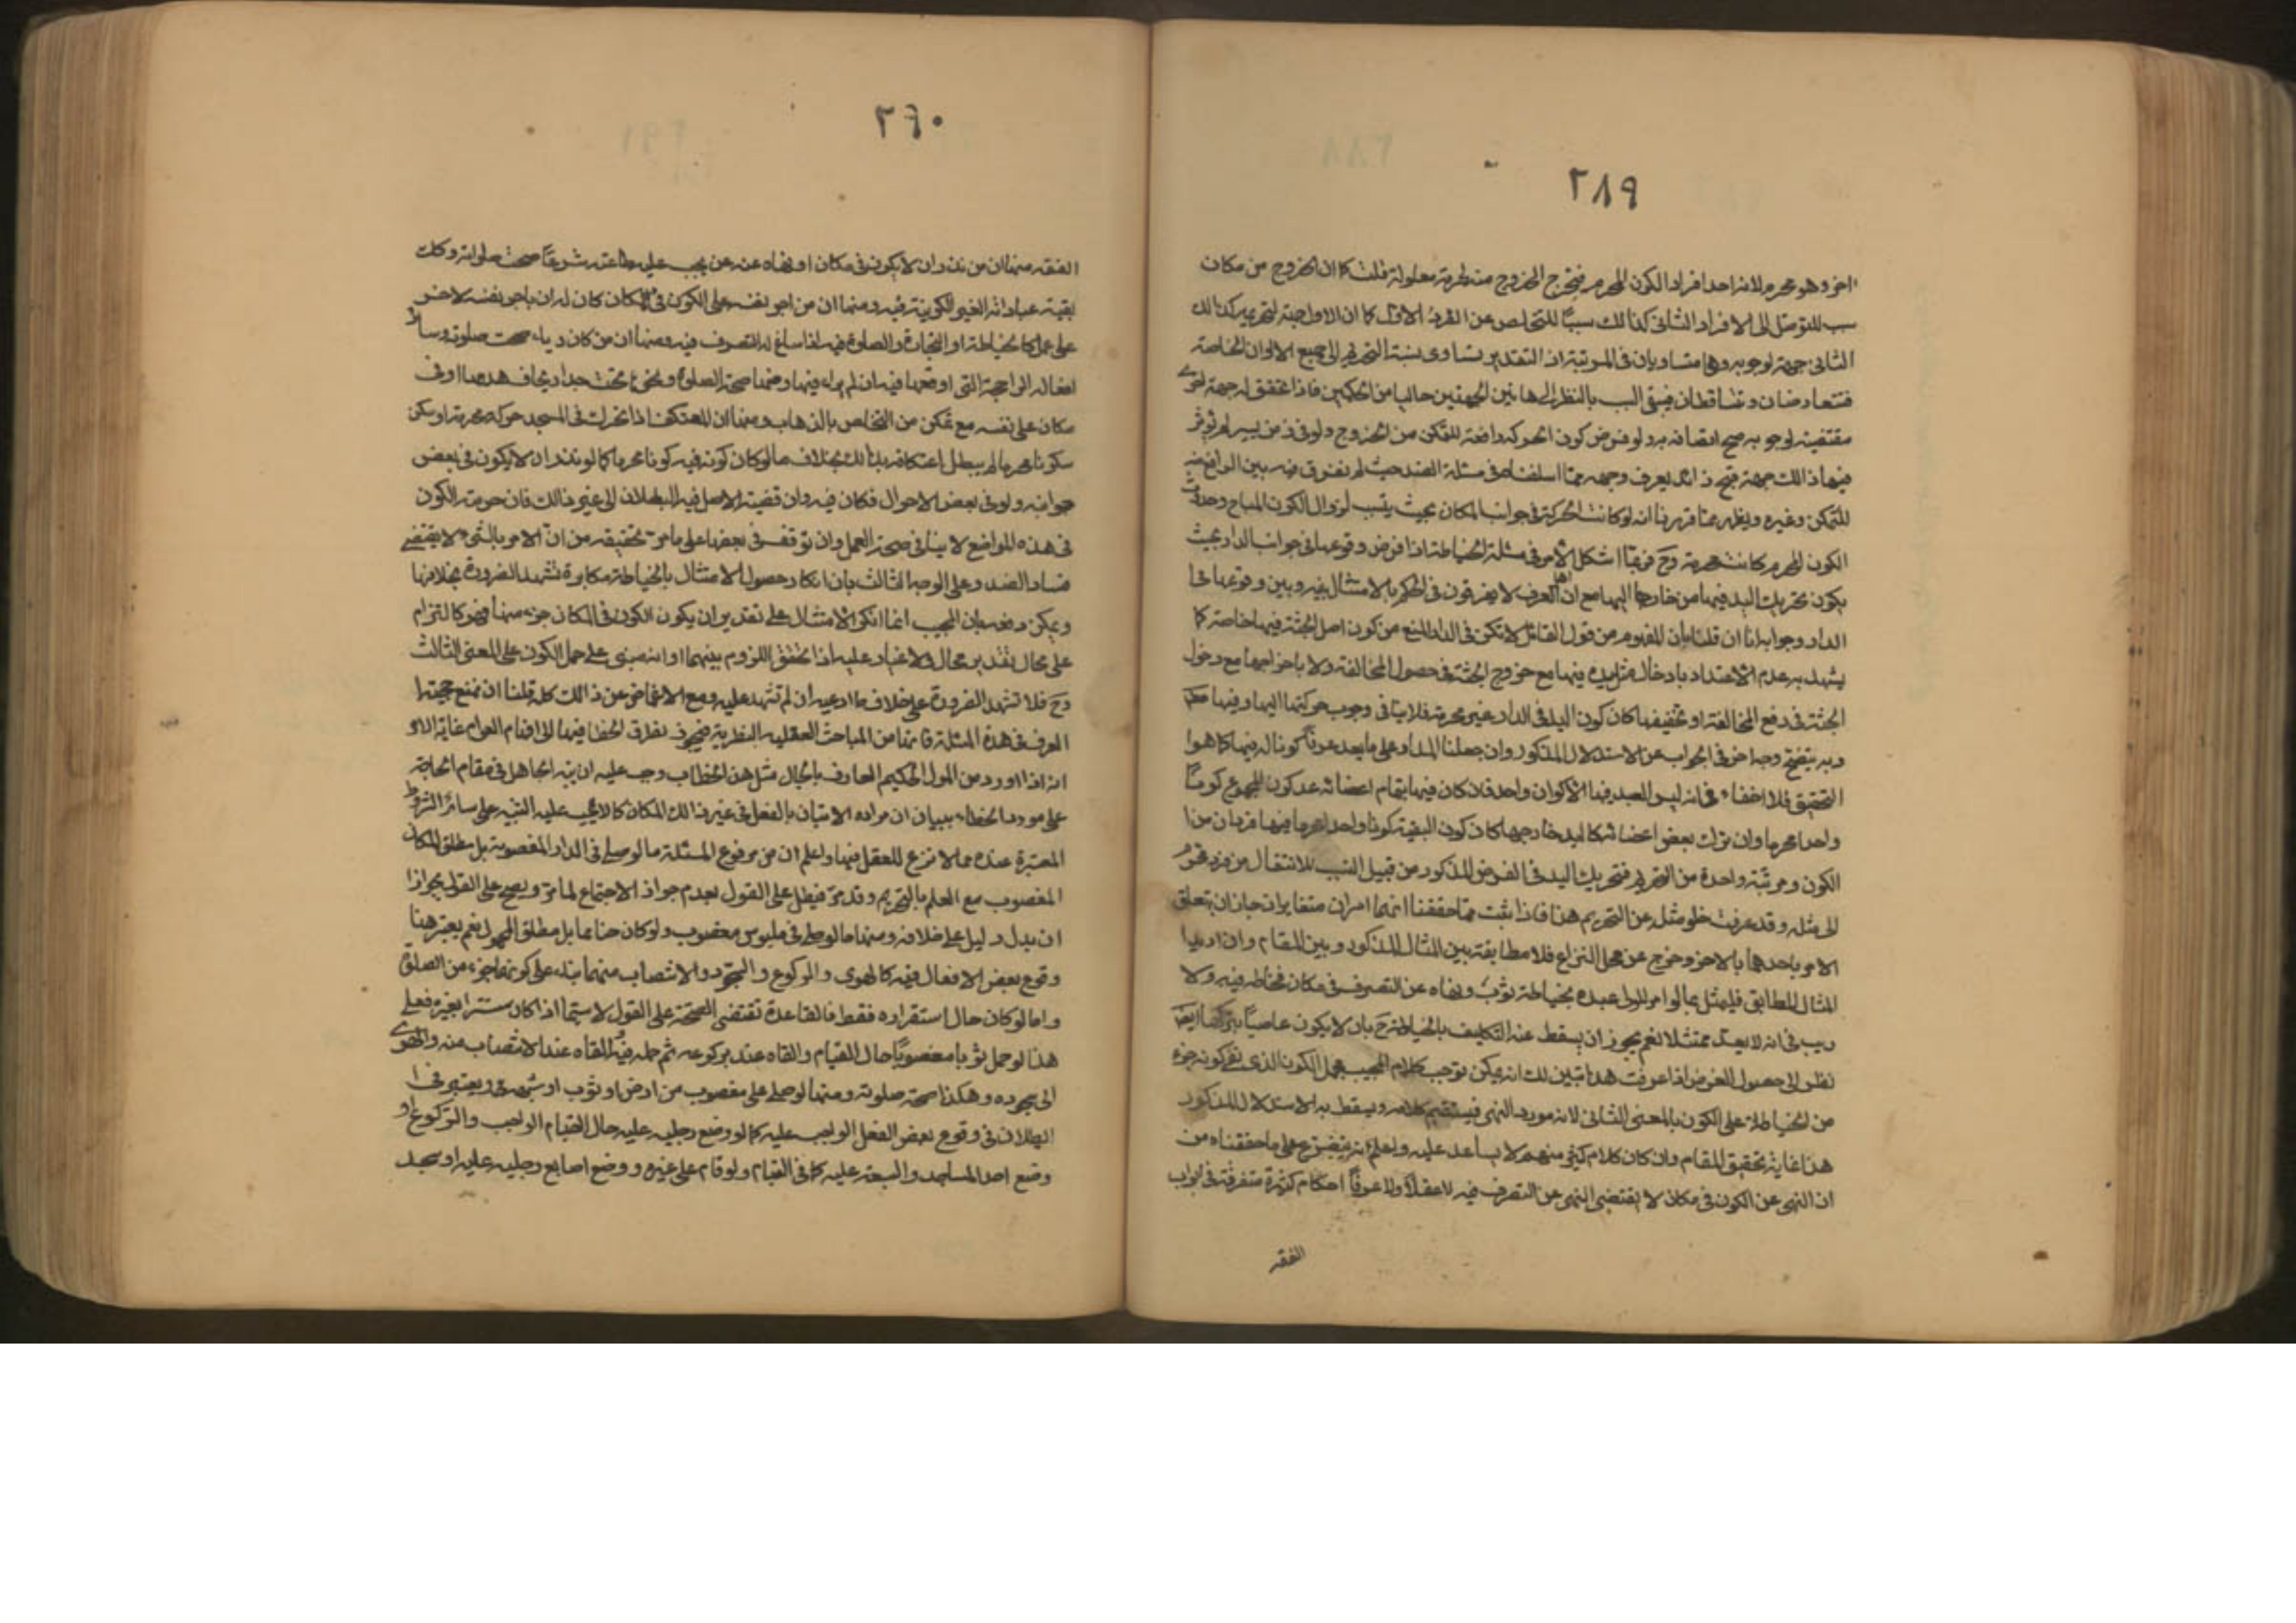 ٢٨٩
اخر وهو محرم لانه احد افراد الكون المحرم فيخرج الخروج منه لحرمة معلولة قلت كما ان الخروج من مكان
سبب للتوصل الى الافراد الثانى كذالك سببا للتخلص عن الفرد الاول كما ان الاول جهة لتحريمه كذالك
الثانى جهة لوجوبه وهما متساويان فى المرتبة اذ التقدير تساوى نسبة التحريم الى جميع الاكوان الخاصة
فتتعارضان وتتساقطان فيبقى السبب بالنظر الى هاتين الجهتين خاليا من الحكمين فاذا تحقق له جهة اخرى
مقتضية لوجوبه صح اتصافه به ولو فرض كون الحركة رافعة للتمكن من الخروج ولو فى زمن يسير لم تؤثر
فيها ذالك جهة قبح زائد يعرف وجهه مما اسلفناه فى مسئلة الضد حيث لم نفرق فيه بين الرافع
للتمكن وغيره ويظهر مما قررنا انه لو كانت الحركة فى جوانب المكان بحيث يتسبب لزوال الكون المباح وحدوث
الكون المحرم كانت محرمة وح فربما اشكل الامر فى مسئلة الخياطة اذا فرض وقوعها فى جوانب الدار بحيث
يكون تحريك اليد فيها من خارجها اليها مع ان اهل العرف لا يفرقون فى الحكم بالامتثال بينه وبين وقوعها فى
الدار وجوابه انا ان قلنا بان المفهوم من قول القائل لا تكن فى الدار المنع من كون اصل الجثة فيها خاصة كما
يشهد به عدم الاعتداد بادخال مثل يده فيها مع خروج الجثة فى حصول المخالفة ولا باخراجها مع دخول
الجثة فى دفع المخالفة او تخفيفها كان كون اليد فى الدار غير محرمة فلا ينافى وجوب حركتها اليها وفيها
وبه يتضح وجه اخر فى الجواب عن الاستدلال المذكور وان جعلنا المدار على ما يعد عرفا كونا له فيها كما هو
التحقيق فلا خفاء فى انه ليس للعبد فيها الا كون واحد فان كان فيها بتمام اعضائه عد كون المجموع كونا
واحدا محرما وان ترك بعض اعضائه كاليد خارجها كان كون البقية كونا واحدا محرما فيها فردان من
الكون ومرتبة واحدة من التحريم فتحريك اليد فى الفرض المذكور من قبيل السبب للانتقال من فرد محرم
الى مثله وقد عرفت خلو مثله عن التحريم هنا فاذا ثبت مما حققنا انهما امران متغايران جاز ان يتعلق
الامر باحدهما بالاخر وخرج عن محل النزاع فلا مطابقة بين المثال المذكور وبين المقام وان اريد
المثال المطابق فليمثل بما لو امر المولى عبده بخياطة ثوب ونهاه عن التصرف فى مكان فخاطه فيه ولا
ريب فى انه لا يعد ممتثلا نعم يجوز ان يسقط عنه التكليف بالخياطة ح بان لا يكون عاصيا بتركها
نظر الى حصول الغرض اذا عرفت هذا تبين لك انه يمكن توجيه كلام المجيب بحمل الكون الذى نفى كونه جزء
من الخياطة على الكون بالمعنى الثانى لانه مورد النهى فيستقيم كلامه ويسقط به الاستدلال المذكور
هذا غاية تحقيق المقام وان كان كلام كثير منهم لا يساعد عليه واعلم انه يتفرع على ما حققناه من
ان النهى عن الكون فى مكان لا يقتضى النهى عن التصرف فيه لا عقلا ولا عرفا احكام كثيرة متفرقة فى ابواب
الفقه
٢٩٠
الفقه منها ان من نذر ان لا يكون فى مكان او نهاه عنه من يجب عليه طاعته شرعا صحت صلوته وكذا
بقية عباداته الغير الكونية فيه ومنها ان من اجر نفسه على الكون فى مكان كان له ان ياجر نفسه لاخر
على عمل كالخياطة او التجارة والصلوة فيه اذا ساغ له التصرف فيه ومنها ان من كان رياء صحت صلوته وسائر
افعاله الراجحة التى اوقعها فيه ان لم يراء فيها ومنها صحة الصلوة ونحوها تحت جدار يخاف هدمها او فى
مكان على نفسه مع تمكن من التخلص بالذهاب ومنها ان المعتكف اذا تحرك فى المسجد حركة محرمة او سكن
سكونا محرما لم يبطل اعتكافه بذالك بخلاف ما لو كان كونه فيه كونا محرما كما لو نذر ان لا يكون فى بعض
جوانبه ولو فى بعض الاحوال فكان فيه فان قضية الاصل فيه البطلان الى غير ذالك فان حرمة الكون
فى هذه المواضع لا ينافى صحة العمل وان توقف فى بعضها على ما مر تحقيقه من ان الامر بالشىء لا يقتضى
فساد الضد وعلى الوجه الثالث بان انكار حصول الامتثال بالخياطة مكابرة تشهد الضرورة بخلافها
ويمكن دفعه بان المجيب انما انكر الامتثال على تقدير ان يكون الكون فى المكان جزء منها فهو كالتزام
على محال بتقدير محال ولا غبار عليه اذا تحقق اللزوم بينهما او انه مبنى على حمل الكون على المعنى الثالث
وح فلا تشهد الضرورة على خلاف ما ادعيه ان لم تشهد عليه ومع الاغماض عن ذالك كله قلنا ان نمنع حجية
العرف فى هذه المسئلة فانها من المباحث العقلية النظرية فيجوز تطرق الخفاء فيها الى افهام العوام غاية الامر
انه اذا اورد من المولى الحكيم العارف بالحال مثل هذا الخطاب وجب عليه ان ينبه الجاهل فى مقام الحاجة
على مورد الخطاء ببيان ان مراده الاتيان بالفعل فى غير ذالك المكان كما لا يجب عليه التنبيه على سائر الشروط
المعتبرة عنده مما لا نزع للعقل فيها واعلم ان من فروع المسئلة ما لو صلى فى الدار المغصوبة بل مطلق المكان
المغصوب مع العلم بالتحريم وقد مر فيطل على القول بعدم جواز الاجتماع لما مر ويصح على القول بجواز
ان يدل دليل على خلافه ومنها ما لو صلى فى ملبوس مغصوب ولو كان خاتما بل مطلق المحمول نعم يعتبر هنا
وقوع بعض الافعال فيه كالهوى والركوع والسجود والانتصاب منهما بناء على كونها جزء من الصلوة
واما لو كان حال استقراره فقط فالقاعدة تقتضى الصحة على القول لا سيما اذا كان مستترا بغيره فعلى
هذا لو حمل ثوبا مغصوبا حال القيام والقاه عند ركوعه ثم حمله فيه القاه عند الانتصاب منه والهوى
الى سجوده وهكذا صحة صلوته ومنها لو صلى على مغصوب من ارض او ثوب او شبهه ويعتبر فى
البطلان فى وقوع بعض الفعل الواجب عليه كما لو وضع رجليه عليه حال القيام الواجب والركوع او
وضع احد المساجد والسبعة عليه كما فى القيام ولو قام على غيره ووضع اصابع رجليه عليه او سجد